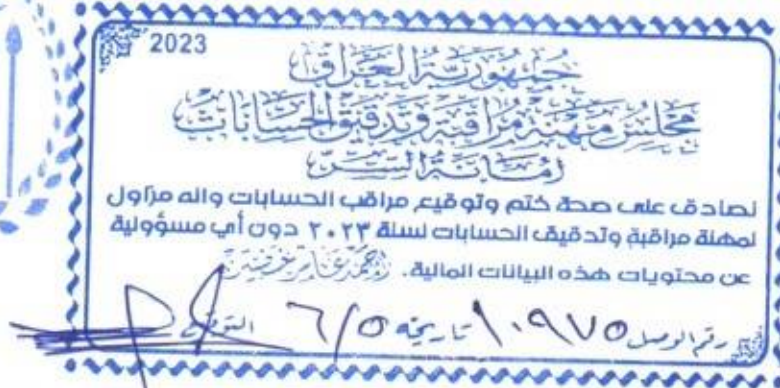 2023
جمهورية العراق
مجلس مهنة مراقبة وتدقيق الحسابات
أمانة السر
نصادق على صحة ختم وتوقيع مراقب الحسابات وانه مزاول
لمهنة مراقبة وتدقيق الحسابات لسنة ٢٠٢٣ دون أي مسؤولية
عن محتويات هذه البيانات المالية. أحمد عامر
رقم الوصل ١٠٩٧٥ تاريخه ٦/٥ التوقيع